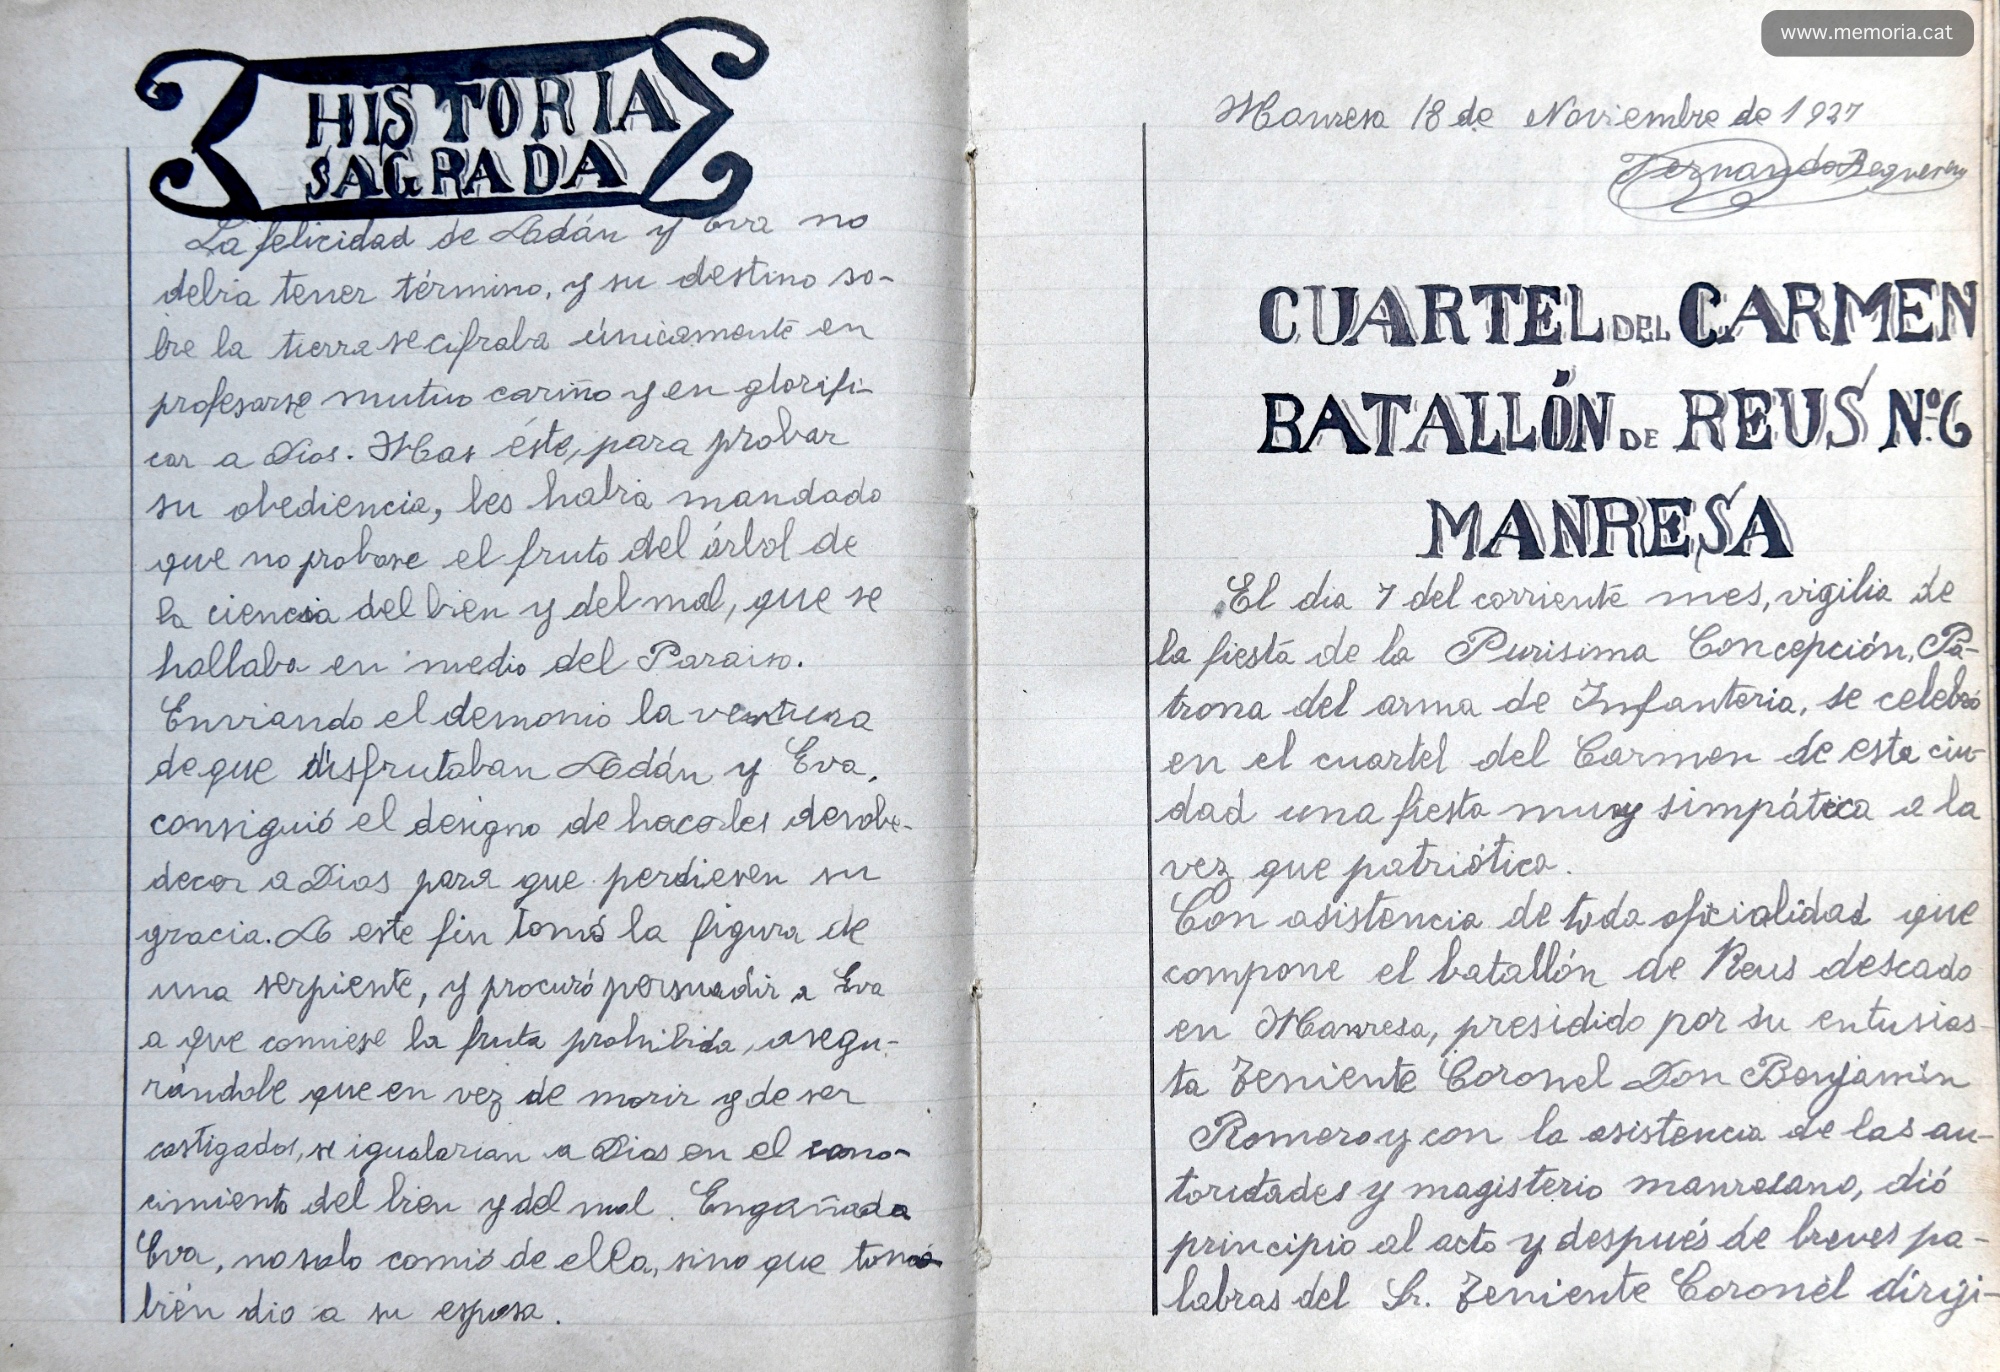 HISTORIA
SAGRADA
La felicidad de Adán y Eva no
debia tener término, y su destino so-
bre la tierra se cifraba únicamente en
profesarse mutuo cariño y en glorifi-
car a Dios. Mas éste, para probar
su obediencia, les habia mandado
que no probase el fruto del árbol de
la ciencia del bien y del mal, que se
hallaba en medio del Paraiso.
Enviando el demonio la ventura
de que disfrutaban Adán y Eva,
consiguió el designo de hacerles desobe-
decer a Dios para que perdiesen su
gracia. A este fin tomó la figura de
una serpiente, y procuró persuadir a Eva
a que comiese la fruta prohibida, asegu-
rándole que en vez de morir y de ser
castigados, se igualarian a Dios en el cono-
cimiento del bien y del mal. Engañada
Eva, no solo comió de ella, sino que tam
bién dio a su esposa.
www.memoria.cat
Manresa 18 de Noviembre de 1927
Fernando
CUARTEL DEL CARMEN
BATALLÓN DE REUS Nº 6
MANRESA
El dia 7 del corriente mes, vigilia de
la fiesta de la Purisima Concepción, Pa-
trona del arma de Infanteria, se celebró
en el cuartel del Carmen de esta ciu-
dad una fiesta muy simpática a la
vez que patriótica.
Con asistencia de toda oficialidad que
compone el batallón de Reus descado
en Manresa, presidido por su entusias-
ta Teniente Coronel Don Benjamin
Romero y con la asistencia de las au-
toridades y magisterio manresano, dió
principio al acto y después de breves pa-
labras del Sr. Teniente Coronel diriji-